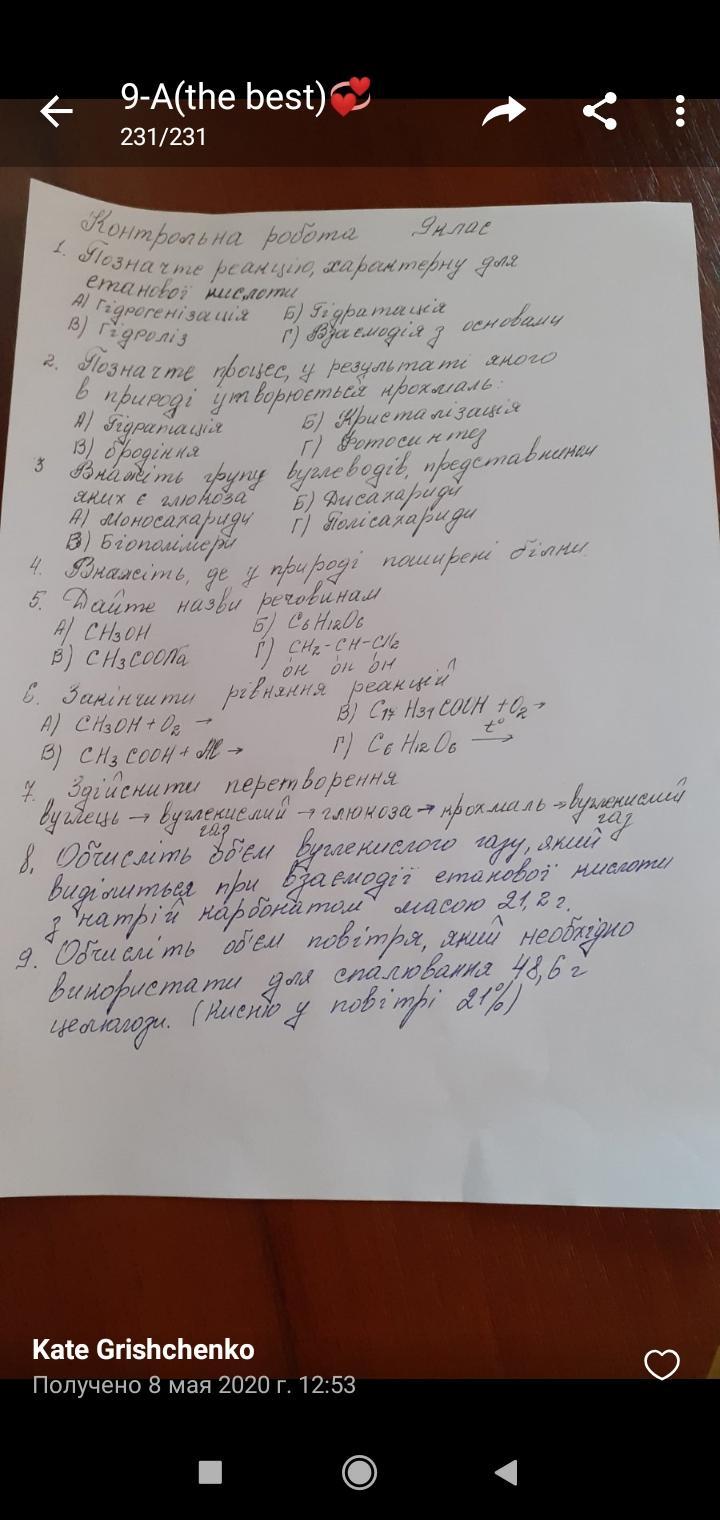 9-A(the best)💞
231/231
Контрольна робота 9клас
1. Позначте реакцію, характерну для
етанової кислоти
А) Гідрогенізація Б) Гідратація
В) Гідроліз Г) Взаємодія з основами
2. Позначте процес, у результаті якого
в природі утворюється крохмаль:
А) Гідратація Б) Кристалізація
В) бродіння Г) Фотосинтез
3 Вкажіть групу вуглеводів, представником
яких є глюкоза
А) Моносахариди Б) Дисахариди
В) Біополімери Г) Полісахариди
4. Вкажіть, де у природі поширені білки.
5. Дайте назви речовинам
А) CH3OH Б) C6H12O6
В) CH3COONa Г) CH2-CH-CH2
OH OH OH
6. Закінчити рівняння реакцій
А) CH3OH + O2 → В) C17H31COOH + O2 →
В) CH3COOH + → Г) C6H12O6 t° →
7. Здійснити перетворення
вуглець → вуглекислий → глюкоза → крохмаль → вуглекислий
газ газ
8. Обчисліть об'єм вуглекислого газу, який
виділиться при взаємодії етанової кислоти
з натрій карбонатом масою 21,2 г.
9. Обчисліть об'єм повітря, який необхідно
використати для спалювання 48,6 г
целюлози. (Кисню у повітрі 21%)
Kate Grishchenko
Получено 8 мая 2020 г. 12:53